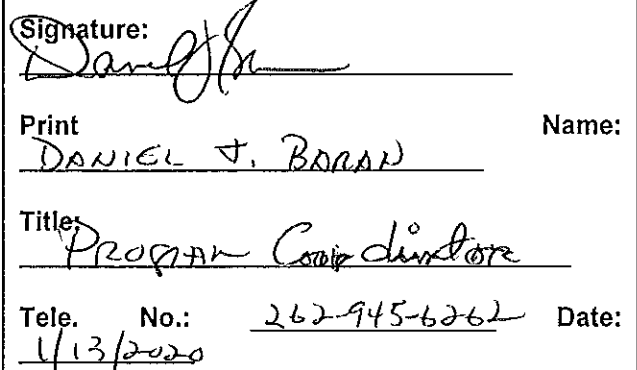 Signature:
Print Name:
DANIEL J. BARAN
Title:
PROGRAM Coordinator
Tele. No.: 262-945-6262 Date:
1/13/2020